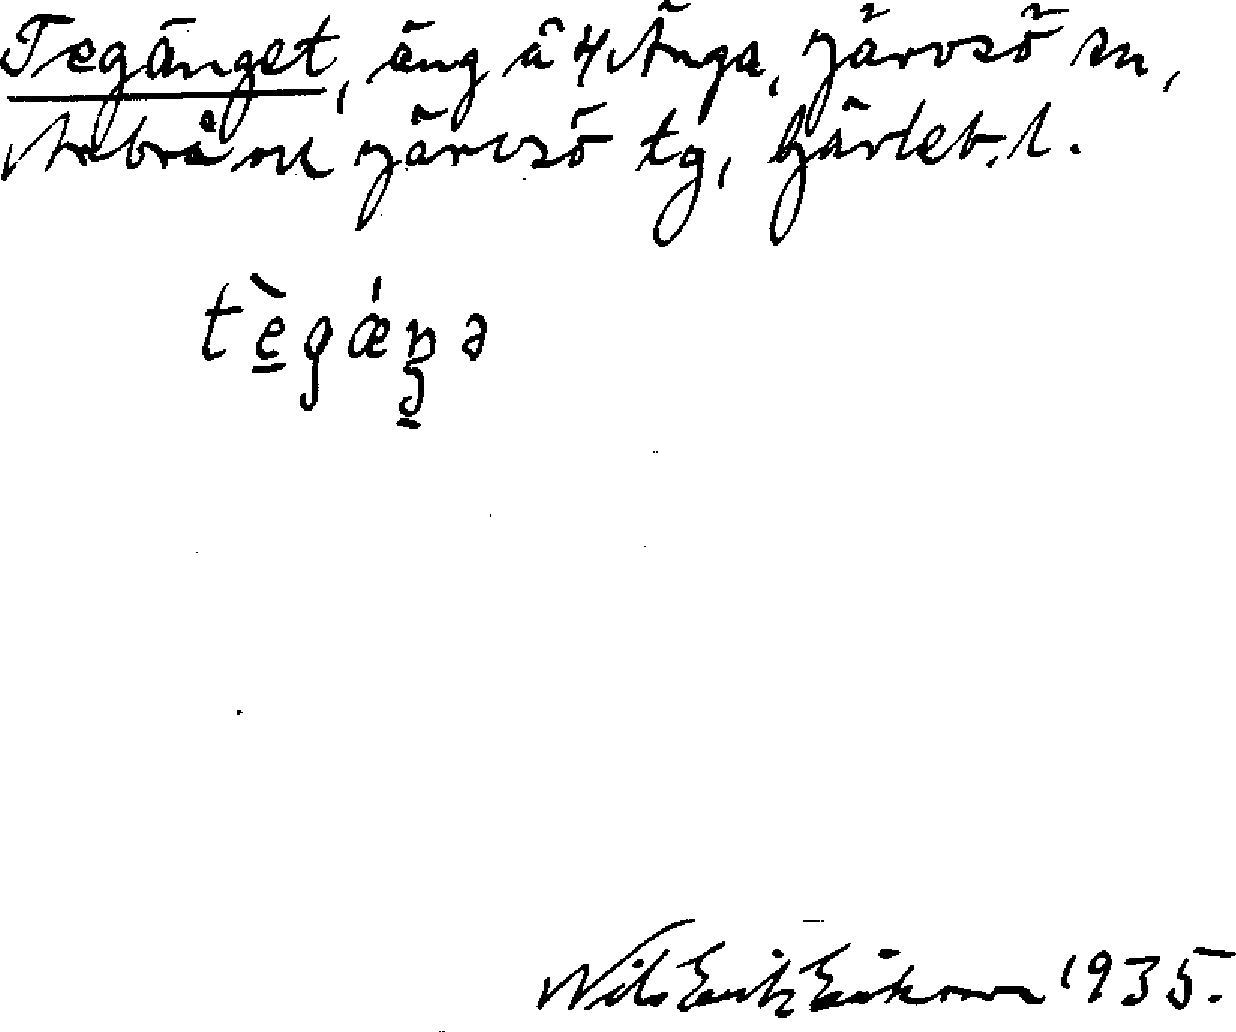 Tegänget, äng å 4 Änga, Järvsö sn,
Arbrå och Järvsö tg, Gävleb. l.
tè̱gǽŋə
Nils Erik Eriksson 1935.